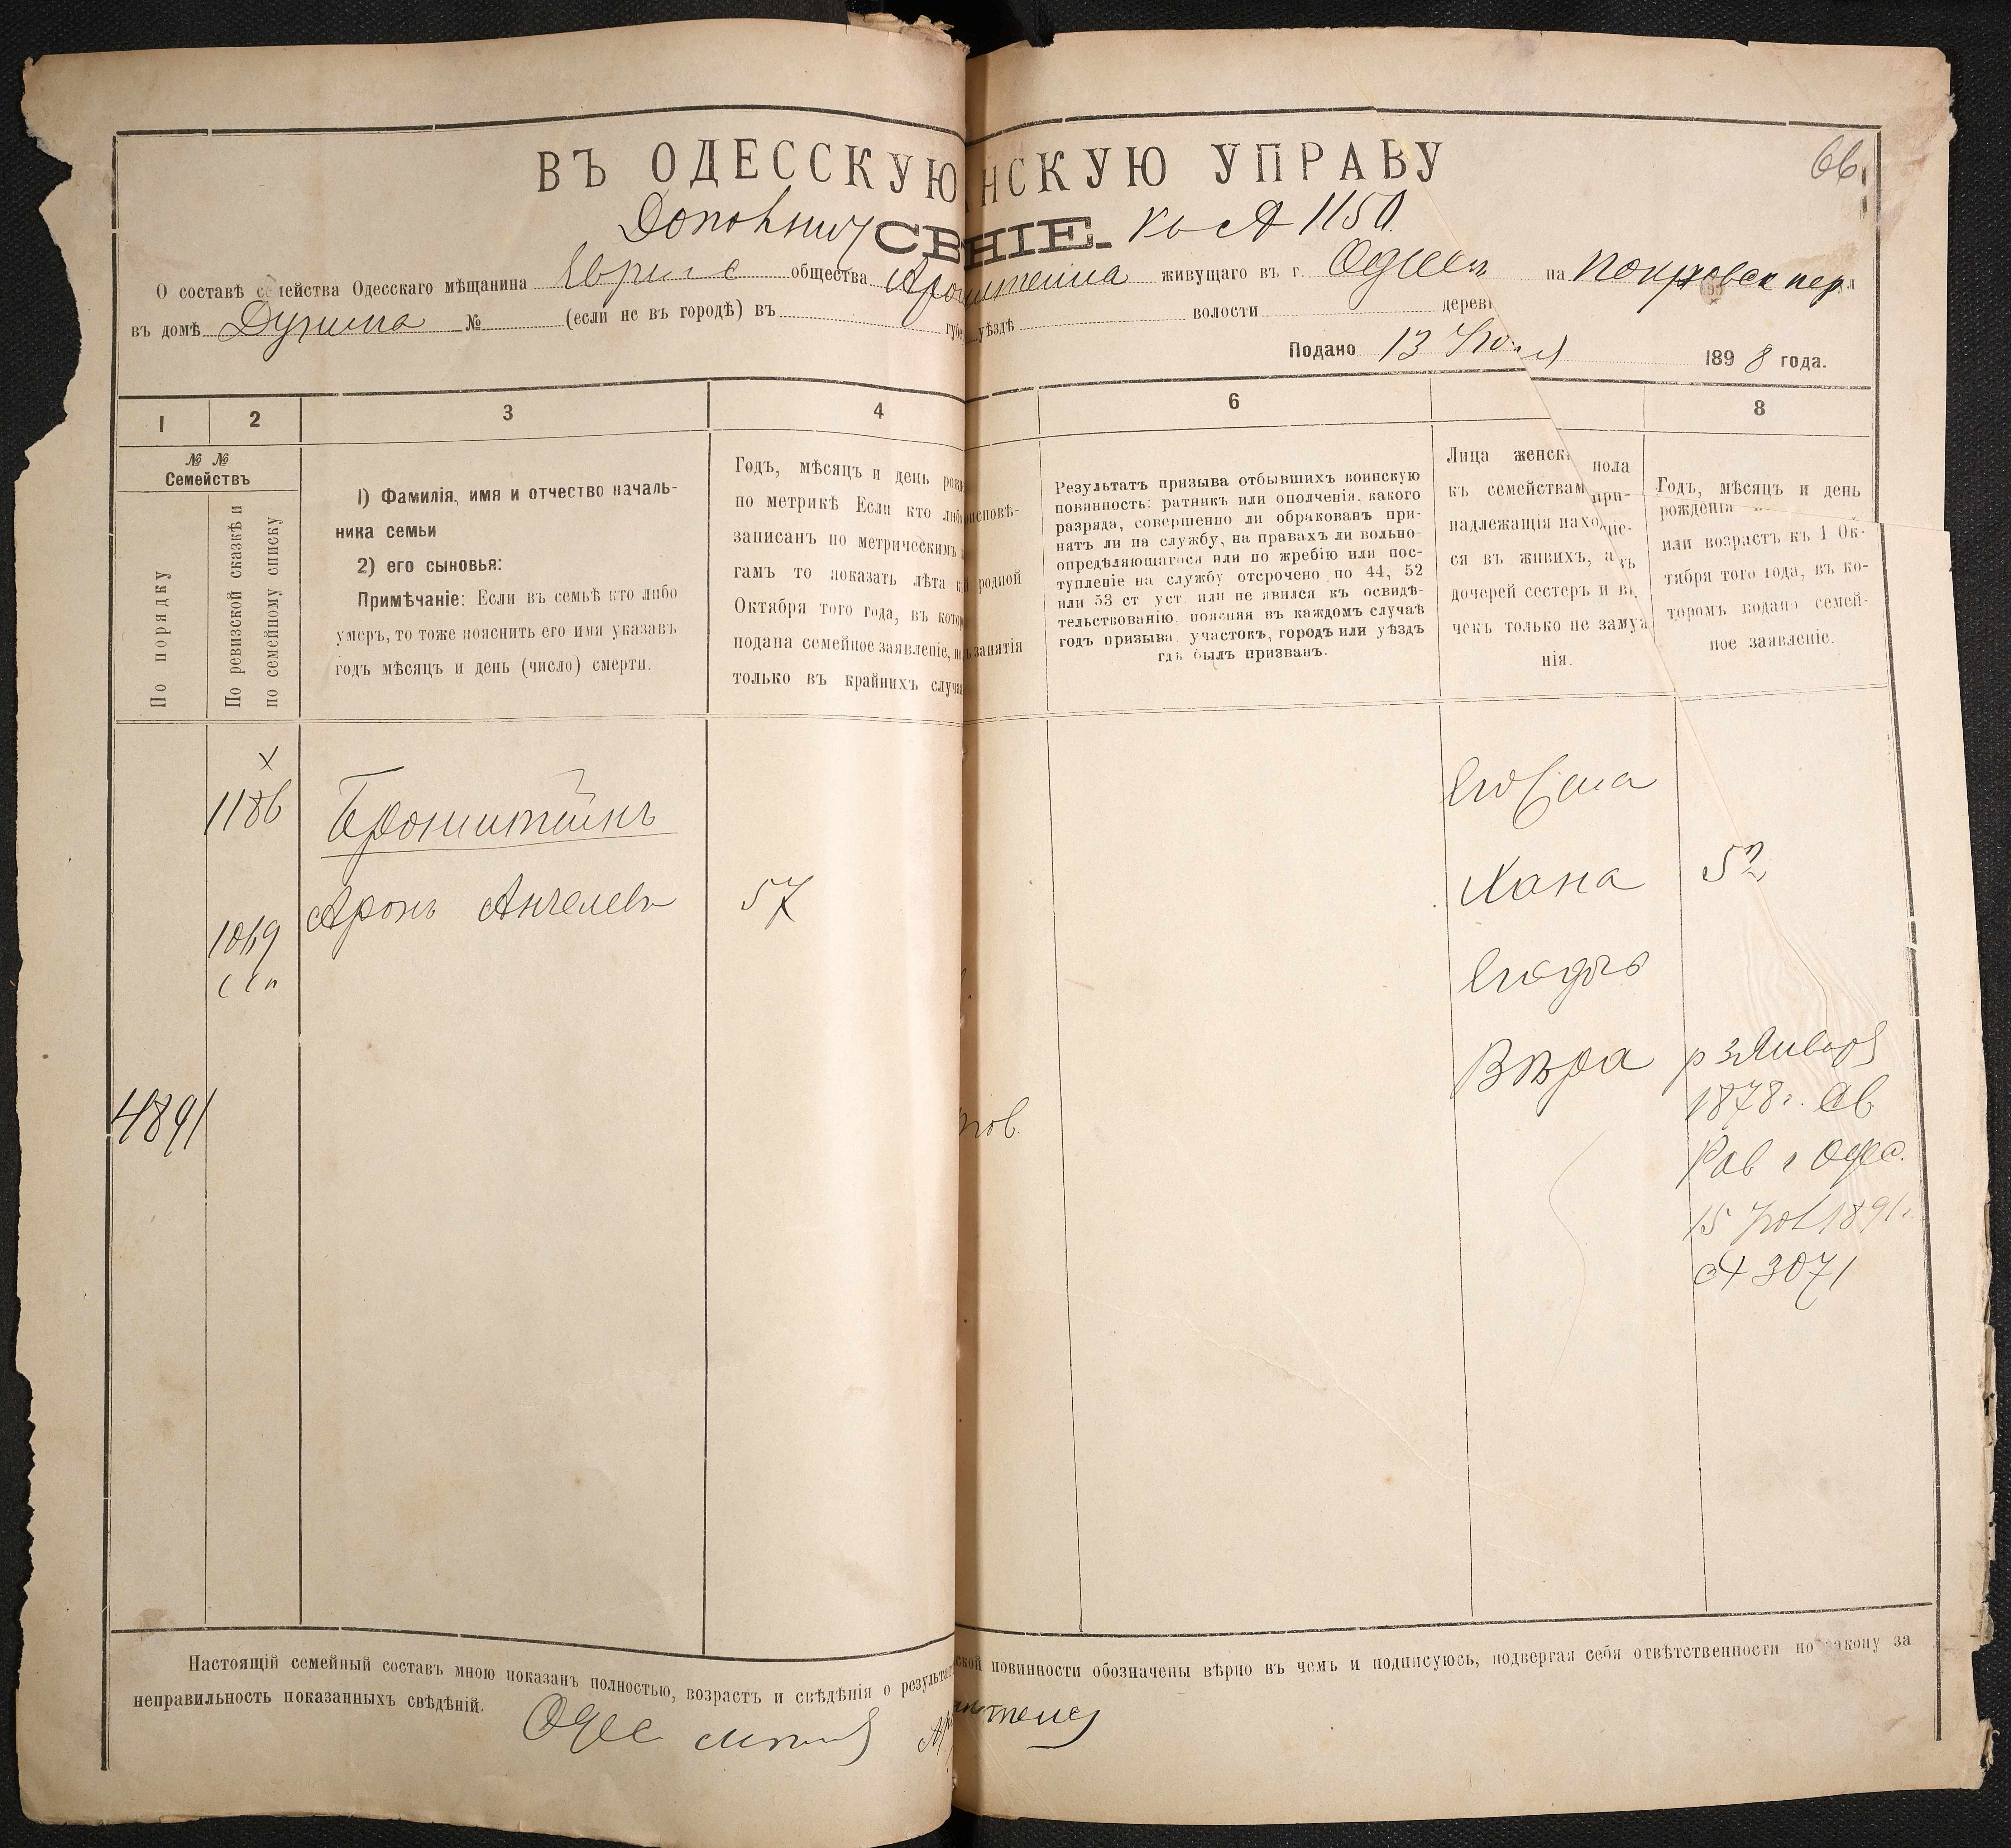 66
ВЪ ОДЕССКУЮ НСКУЮ УПРАВУ
СВ НІЕ. къ № 1150
О составѣ семейства Одесскаго мѣщанина общества живущаго въ г. Одессѣ на Покровск пер
въ домѣ № (если не въ городѣ) въ уѣздѣ волости дерев
Подано 13 1898 года.
1 2 3 4 6 8
№ №
Семействъ
По порядку
По ревизской сказкѣ и
по семейному списку
1) Фамилія, имя и отчество началь-
ника семьи
2) его сыновья:
Примѣчаніе: Если въ семьѣ кто либо
умеръ, то тоже пояснить его имя указавъ
годъ мѣсяцъ и день (число) смерти.
Годъ, мѣсяцъ и день рожд
по метрикѣ Если кто либо
записанъ по метрическимъ
гамъ то показать лѣта к
Октября того года, въ котор
подана семейное заявленіе, но
только въ крайнихъ случа
исповѣ-
родной
занятія
Результатъ призыва отбывшихъ воинскую
повинность: ратникъ или ополченія, какого
разряда, совершенно ли обракованъ при-
нятъ ли на службу, на правахъ ли вольно-
опредѣляющагося или по жребію или пос-
тупленіе на службу отсрочено по 44, 52
или 53 ст уст или не явился къ освидѣ-
тельствованію, поясняя въ каждомъ случаѣ
годъ призыва, участокъ, городъ или уѣздъ
гдѣ былъ призванъ.
Лица женск пола
къ семействам при-
надлежащія нахо щіе-
ся въ живихъ, а въ
дочерей сестеръ и вн
чекъ только не замуж
нія.
Годъ, мѣсяцъ и день
рожденія
или возрастъ къ 1 Ок-
тября того года, въ ко-
торомъ подано семей-
ное заявленіе.
х
1186
Бронштейнъ
Аронъ Анчелевъ 57
1049
Его жена
Хана 52
Его дочь
Вѣра р 3 Января
1878 г. Св
Рав г Одес.
15 1891 г
№ 3071
4891
нов.
Настоящій семейный составъ мною показанъ полностью, возрастъ и свѣдѣнія о результат ской повинности обозначены вѣрно въ чемъ и подписуюсь, подвергая себя отвѣтственности по закону за
неправильность показанныхъ свѣдѣній.
Одес